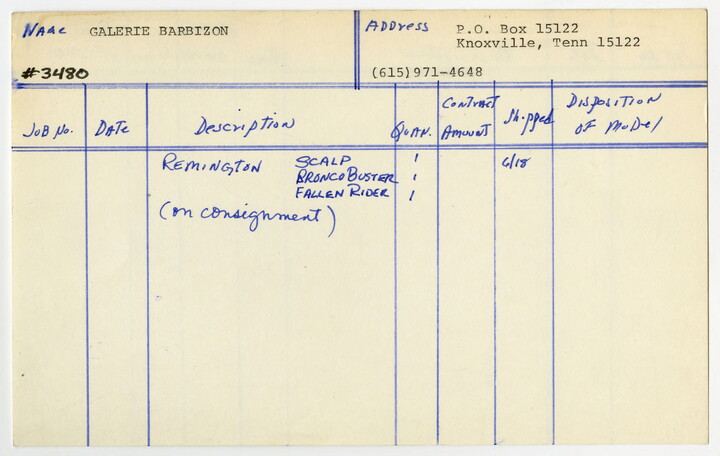 Name GALERIE BARBIZON
#3480
Address P.O. Box 15122
Knoxville, Tenn 15122
(615)971-4648
Job No. Date Description Quan. Contract Amount Shipped Disposition of Model
Remington Scalp 1 6/18
Bronco Buster 1
Fallen Rider 1
(on consignment)